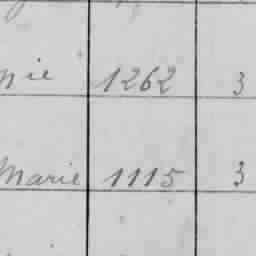 nie 1262 3
Marie 1115 3